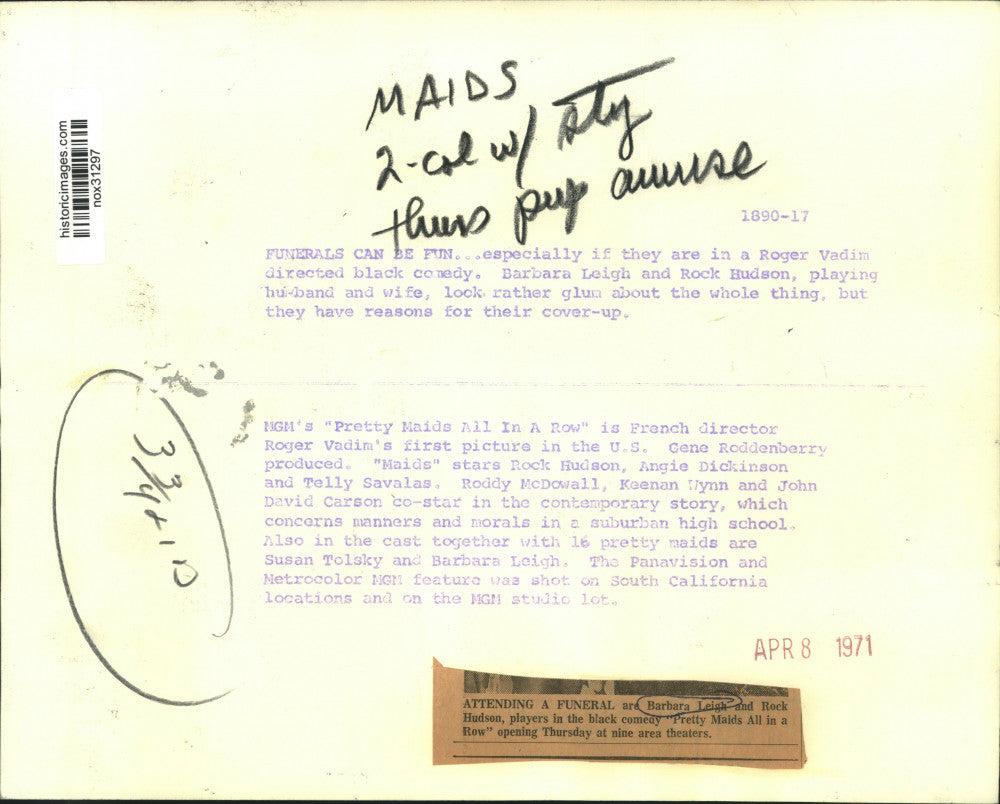 MAIDS
2-col w/ sty
thurs pup amuse
historicimages.com
nox31297
1890-17
FUNERALS CAN BE FUN...especially if they are in a Roger Vadim
directed black comedy. Barbara Leigh and Rock Hudson, playing
husband and wife, look rather glum about the whole thing, but
they have reasons for their cover-up.
MGM's "Pretty Maids All In A Row" is French director
Roger Vadim's first picture in the U.S. Gene Roddenberry
produced. "Maids" stars Rock Hudson, Angie Dickinson
and Telly Savalas. Roddy McDowall, Keenan Wynn and John
David Carson co-star in the contemporary story, which
concerns manners and morals in a suburban high school.
Also in the cast together with 16 pretty maids are
Susan Tolsky and Barbara Leigh. The Panavision and
Metrocolor MGM feature was shot on South California
locations and on the MGM studio lot.
APR 8 1971
ATTENDING A FUNERAL are Barbara Leigh and Rock
Hudson, players in the black comedy "Pretty Maids All in a
Row" opening Thursday at nine area theaters.